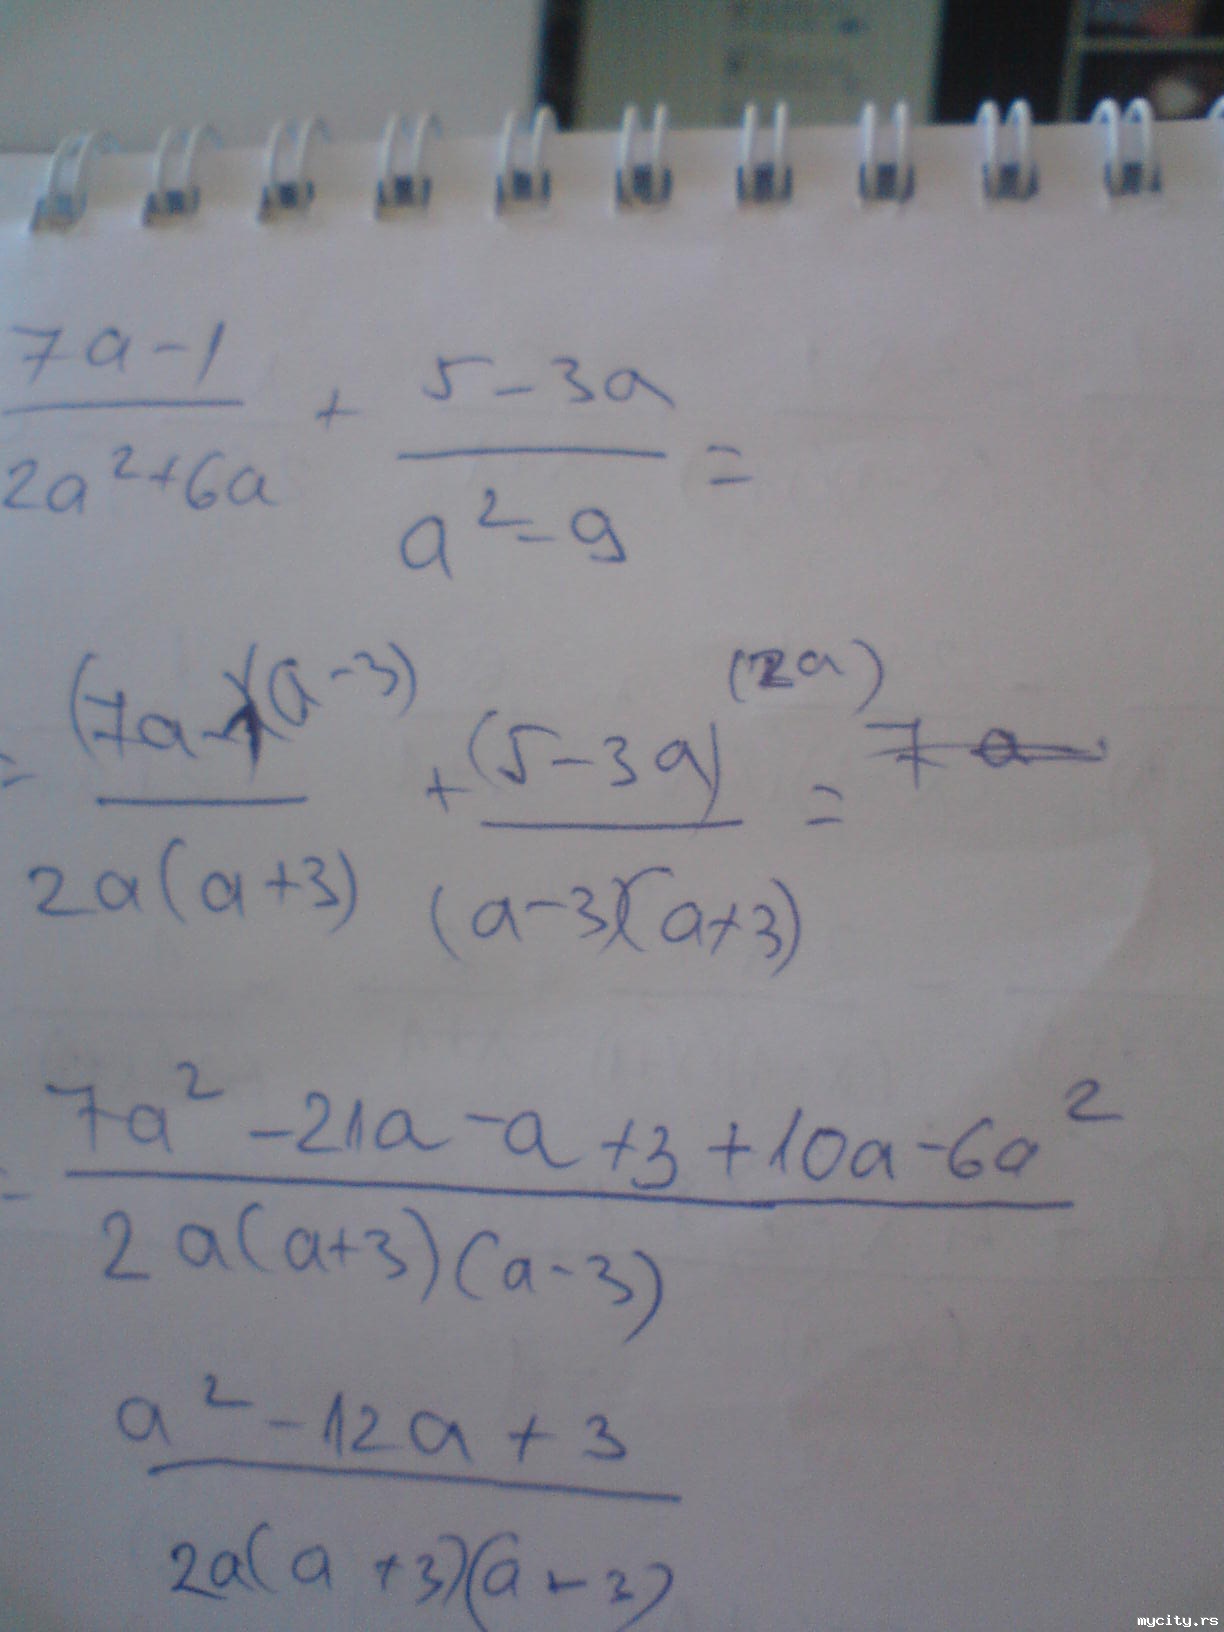 7a-1/2a²+6a + 5-3a/a²-9 =
= (7a-1)(a-3)/2a(a+3) + (5-3a)(2a)/(a-3)(a+3) = 7a
= 7a²-21a-a+3+10a-6a²/2a(a+3)(a-3)
a²-12a+3/2a(a+3)(a-3)
mycity.rs